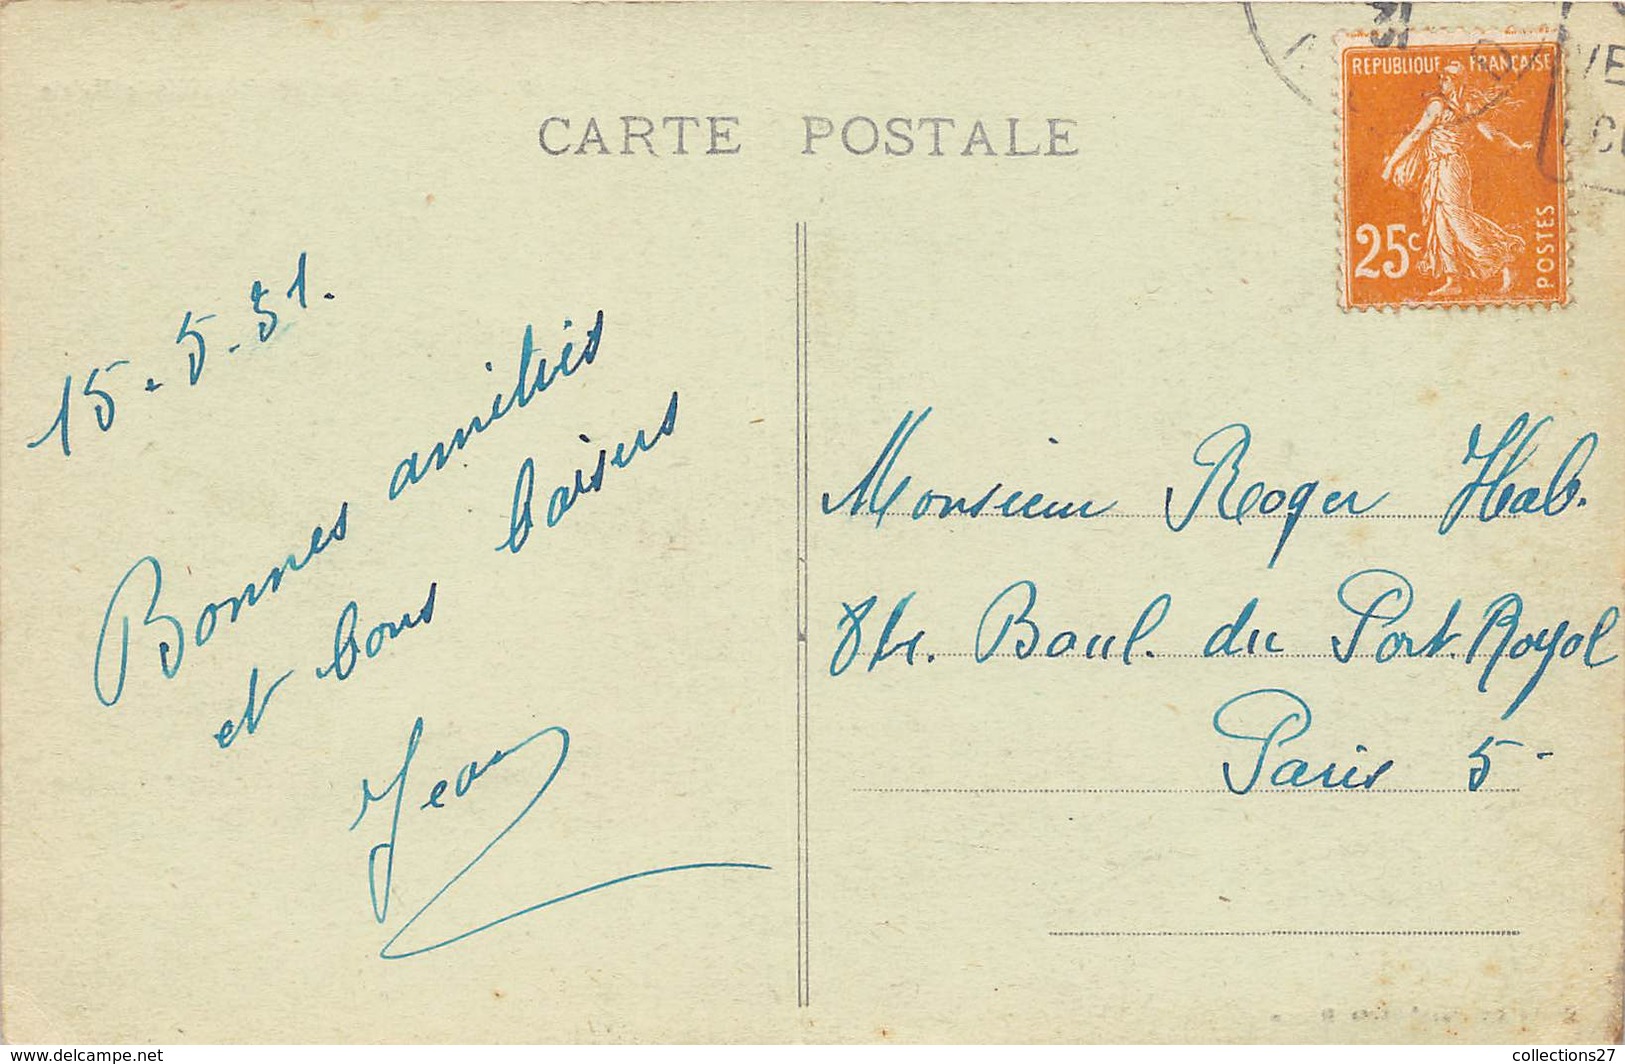 CARTE POSTALE
31
REPUBLIQUE FRANÇAISE
25c
POSTES
15-5-31.
Bonnes amitiés
et bons baisers
Jean
Monsieur Roger Hab.
84. Boul. du Port. Royal
Paris 5-
collections27